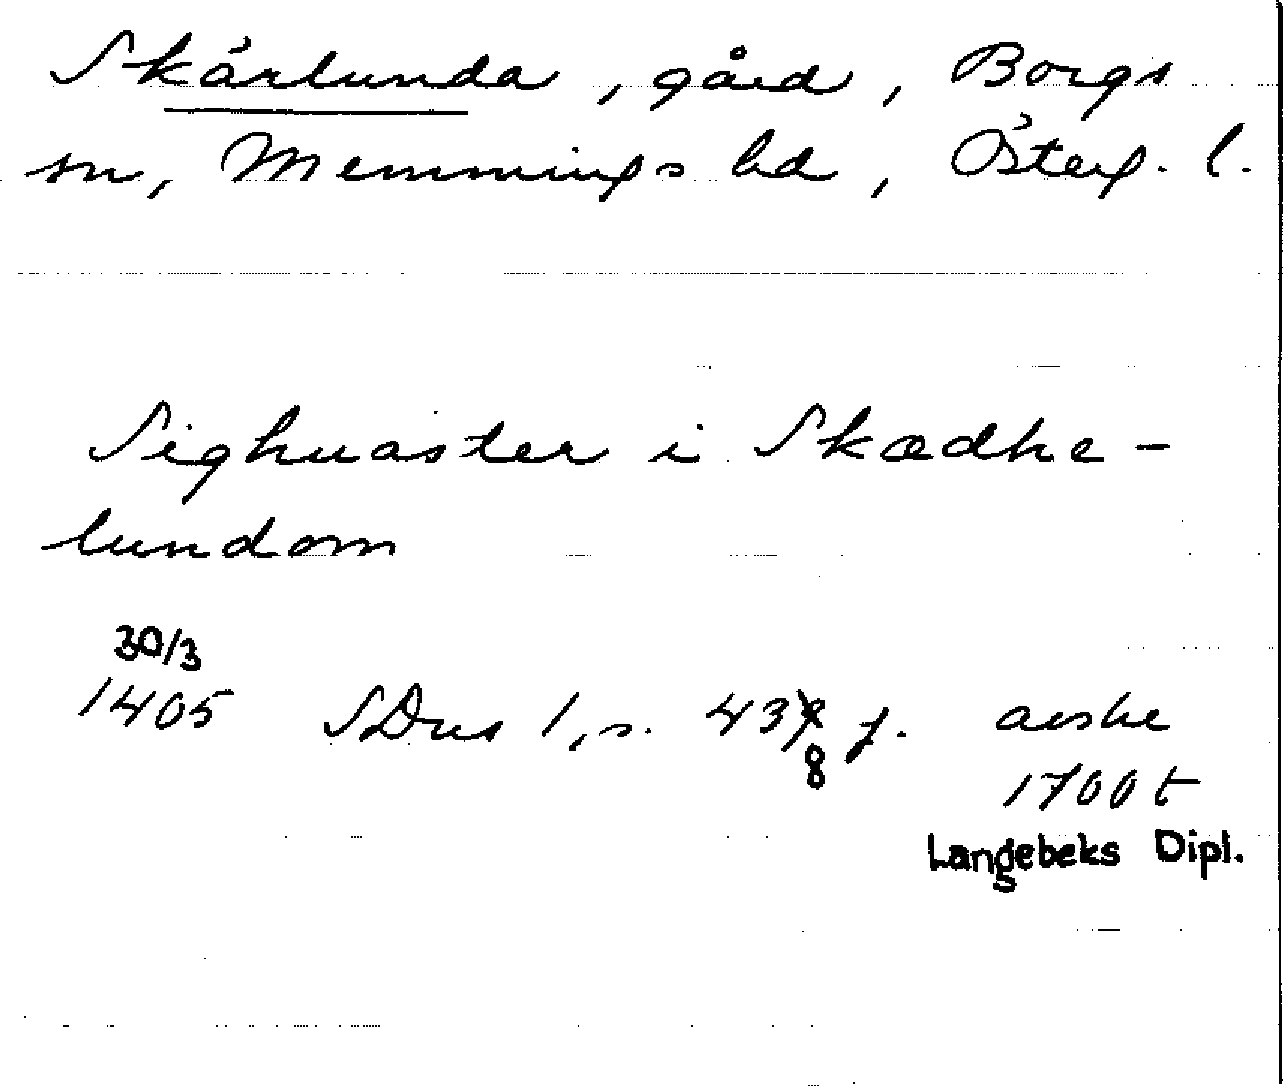 Skärlunda, gård, Borgs
sn, Memmings hd, Österg. l.
Sighuaster i Skædhe-
lundom
30/3
1405 SDns 1, s. 438 f. avskr
1700 t
Langebeks Dipl.